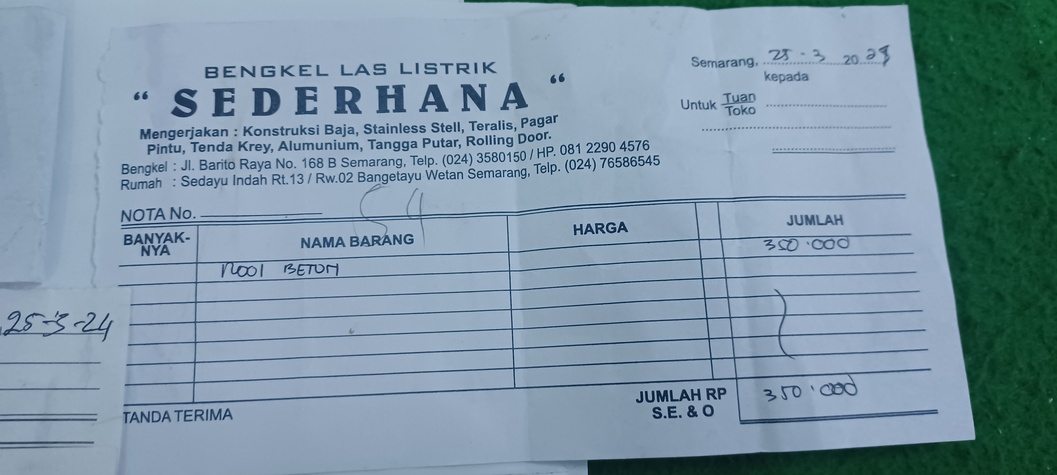 BENGKEL LAS LISTRIK
“ SEDERHANA “
Mengerjakan : Konstruksi Baja, Stainless Stell, Teralis, Pagar
Pintu, Tenda Krey, Alumunium, Tangga Putar, Rolling Door.
Bengkel : Jl. Barito Raya No. 168 B Semarang, Telp. (024) 3580150 / HP. 081 2290 4576
Rumah : Sedayu Indah Rt.13 / Rw.02 Bangetayu Wetan Semarang, Telp. (024) 76586545
Semarang, 25 - 3 20
kepada
Untuk Tuan
Toko
NOTA No.
54
BANYAK-
NYA
NAMA BARANG
HARGA
JUMLAH
350.000
BETON
JUMLAH RP
S.E. & O
350.000
TANDA TERIMA
25-3-24